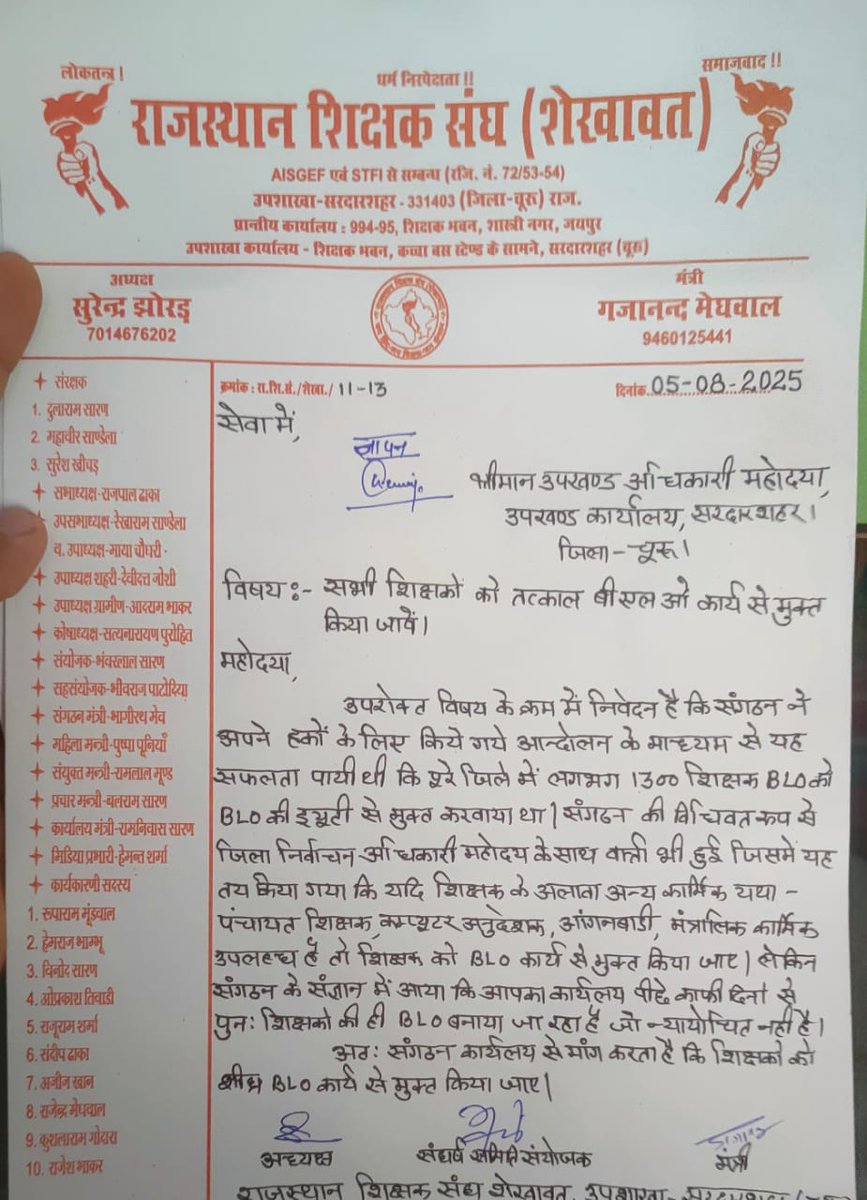 लोकतन्त्र !
धर्म निरपेक्षता !!
समाजवाद !!
राजस्थान शिक्षक संघ (शेखावत)
AISGEF एवं STFI से सम्बन्ध (रजि. नं. 72/53-54)
उपशाखा-सरदारशहर - 331403 (जिला-चूरू) राज.
प्रान्तीय कार्यालय : 994-95, शिक्षक भवन, शास्त्री नगर, जयपुर
उपशाखा कार्यालय - शिक्षक भवन, कच्चा बस स्टेण्ड के सामने, सरदारशहर (चूरू)
अध्यक्ष
सुरेन्द्र झोरड़
7014676202
मंत्री
गजानन्द मेघवाल
9460125441
संरक्षक
1. दुलाराम सारण
2. महावीर साण्डेला
3. सुरेश खीचड़
सभाध्यक्ष-राजपाल ढाका
उपसभाध्यक्ष-रेखाराम साण्डेला
व. उपाध्यक्ष-माया चौधरी
उपाध्यक्ष शहरी-देवीदत्त जोशी
उपाध्यक्ष ग्रामीण-आदराम भाकर
कोषाध्यक्ष-सत्यनारायण पुरोहित
संयोजक-भंवरलाल सारण
सहसंयोजक-भीवराज पाटोदिया
संगठन मंत्री-भागीरथ मेव
महिला मन्त्री-पुष्पा पूनियाँ
संयुक्त मन्त्री-रामलाल मूण्ड
प्रचार मन्त्री-बलराम सारण
कार्यालय मंत्री-रामनिवास सारण
मिडिया प्रभारी-हेमन्त शर्मा
कार्यकारणी सदस्य
1. रूपाराम मूंडवाल
2. हेमराज भाम्भू
3. विनोद सारण
4. ओप्रकाश तिवाडी
5. राजूराम शर्मा
6. संदीप ढाका
7. अजीज खान
8. राजेन्द्र मेघवाल
9. कुशलाराम गोदारा
10. राजेश भाकर
क्रमांक : रा.शि.सं./शेखा./ 11-13
दिनांक 05-08-2025
सेवा में,
ज्ञापन
श्रीमान उपखण्ड अधिकारी महोदया,
उपखण्ड कार्यालय, सरदारशहर।
जिला - चूरू।
विषय :- सभी शिक्षकों को तत्काल बीएल ओ कार्य से मुक्त
किया जावें।
महोदया,
उपरोक्त विषय के क्रम में निवेदन है कि संगठन ने
अपने हकों के लिए किये गये आन्दोलन के माध्यम से यह
सफलता पायी थी कि पूरे जिले में लगभग 1300 शिक्षक BLO को
BLO की ड्यूटी से मुक्त करवाया था। संगठन की विधिवत रूप से
जिला निर्वाचन अधिकारी महोदय के साथ वार्ता भी हुई जिसमें यह
तय किया गया कि यदि शिक्षक के अलावा अन्य कार्मिक यथा -
पंचायत शिक्षक, कम्प्यूटर अनुदेशक, आंगनबाडी, मंत्रालिक कार्मिक
उपलब्ध है तो शिक्षक को BLO कार्य से मुक्त किया जाए। लेकिन
संगठन के संज्ञान में आया कि आपका कार्यलय पीछे काफी दिनों से
पुनः शिक्षकों की ही BLO बनाया जा रहा है जो न्यायोचित नहीं है।
अतः संगठन कार्यलय से मांग करता है कि शिक्षकों को
शीघ्र BLO कार्य से मुक्त किया जाए।
अध्यक्ष
संघर्ष समिति संयोजक
मंत्री
राजस्थान शिक्षक संघ शेखावत, उपशाखा- सरदारशहर